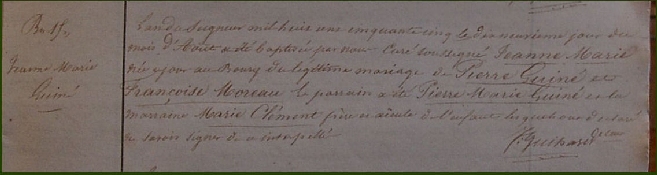 Bat. 15e
Jeanne Marie
Guiné
L'an du Seigneur mil huit cent cinquante cinq le dix neuvième jour du
mois d'Août a été baptisée par nous Curé soussigné Jeanne Marie
née ce jour au Bourg du légitime mariage de Pierre Guiné et
Françoise Moreau le parrain a été Pierre Marie Guiné et la
marraine Marie Clément frère et aieule de l'enfant lesquels ont déclaré
ne savoir signer de ce interpellés
J. Guihard